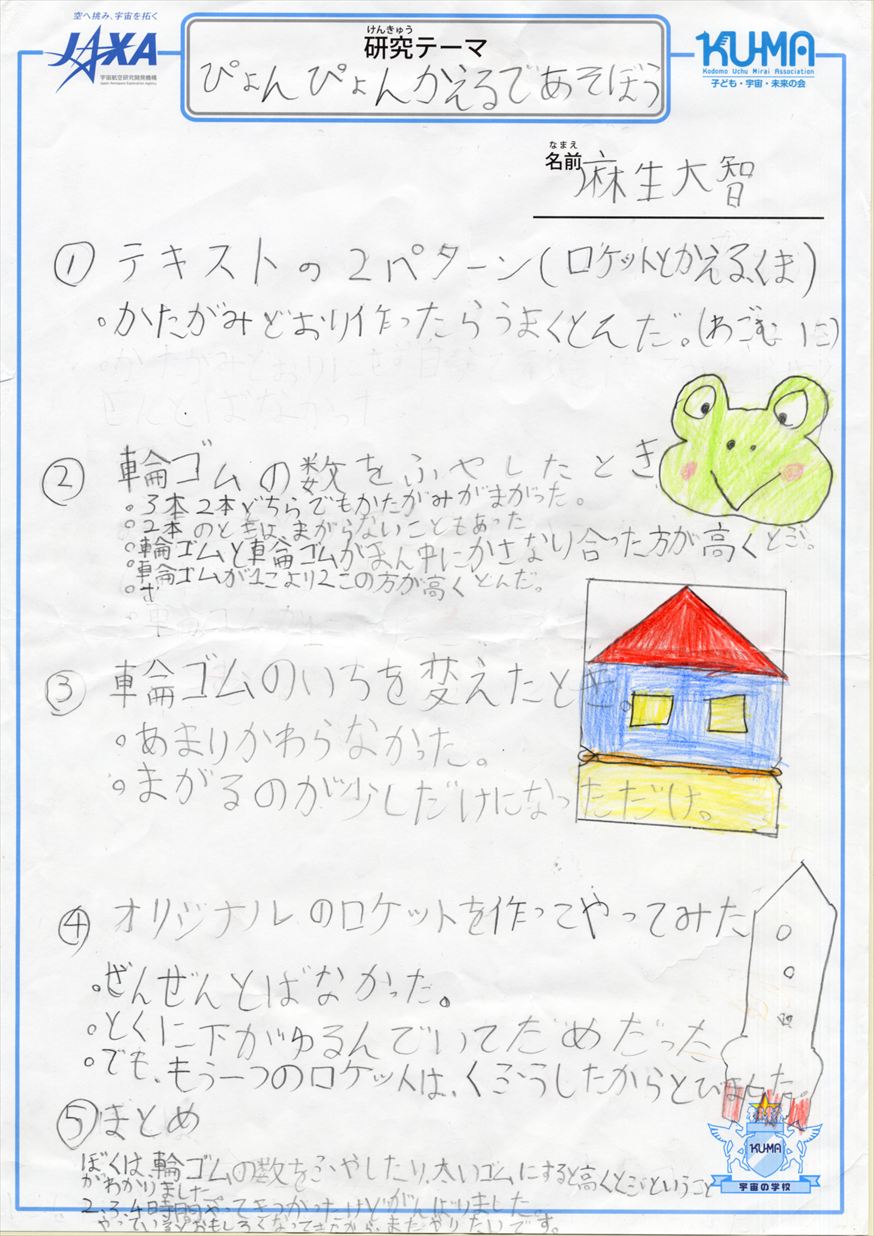 空へ挑み、宇宙を拓く
JAXA
宇宙航空研究開発機構
Japan Aerospace Exploration Agency
けんきゅう
研究テーマ
ぴょんぴょんかえるであそぼう
KU-MA
Kodomo Uchu Mirai Association
子ども・宇宙・未来の会
なまえ
名前 麻生大智
① テキストの2パターン(ロケットとかえる、くま)
。かたがみどおり作ったらうまくとんだ。(わごむ 1こ)
② 輪ゴムの数をふやしたとき
。3本2本どちらでもかたがみがまがった。
。2本のときは、まがらないこともあった
。輪ゴムと輪ゴムがまん中にかさなり合った方が高くとぶ。
。輪ゴムが1こより2この方が高くとんだ。
③ 輪ゴムのいちを変えたとき。
。あまりかわらなかった。
。まがるのが少しだけになっただけ。
④ オリジナルのロケットを作ってやってみた
。ぜんぜんとばなかった。
。とくに下がゆるんでいてだめだった
。でも、もう一つのロケットは、くふうしたからとびました。
⑤ まとめ
ぼくは、輪ゴムの数をふやしたり、太いゴムにすると高くとぶということ
がわかりました。
2、3、4時間やってきつかったけどがんばりました。
やっているとおもしろくなってきたから、またやりたいです。
KU-MA
宇宙の学校